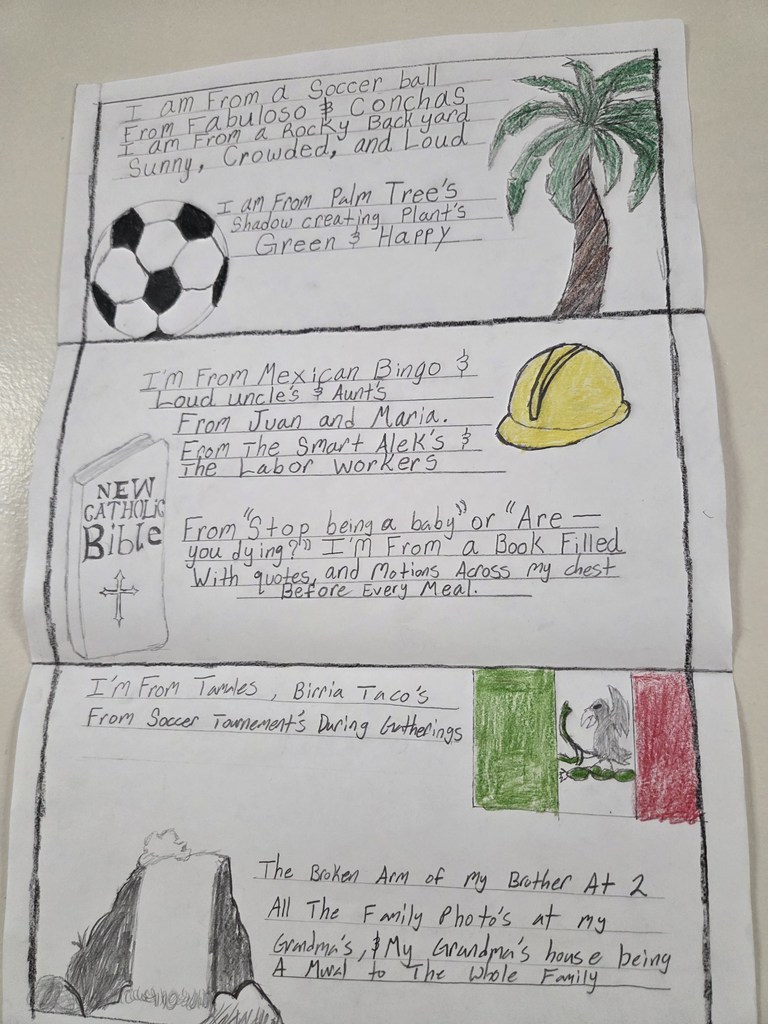 I am From a Soccer ball
From Fabuloso & Conchas
I am From a Rocky Backyard
Sunny, Crowded, and Loud
I am From Palm Tree's
Shadow creating Plant's
Green & Happy
I'm From Mexican Bingo &
Loud uncle's & Aunt's
From Juan and Maria.
From The Smart Alek's &
The Labor workers
NEW
CATHOLIC
Bible
From "Stop being a baby" or "Are —
you dying?" I'M From a Book Filled
With quotes, and Motions Across my chest
Before Every Meal.
I'm From Tamales, Birria Taco's
From Soccer Tournement's During Gatherings
The Broken Arm of my Brother At 2
All The Family Photo's at my
Grandma's, & My Grandma's house being
A Mural to The Whole Family